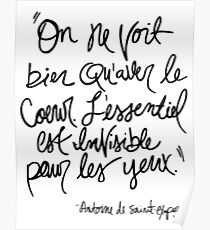 "On ne voit
bien qu'avec le
Coeur. L'essentiel
est invisible
pour les yeux."
-Antoine de Saint-Exupé